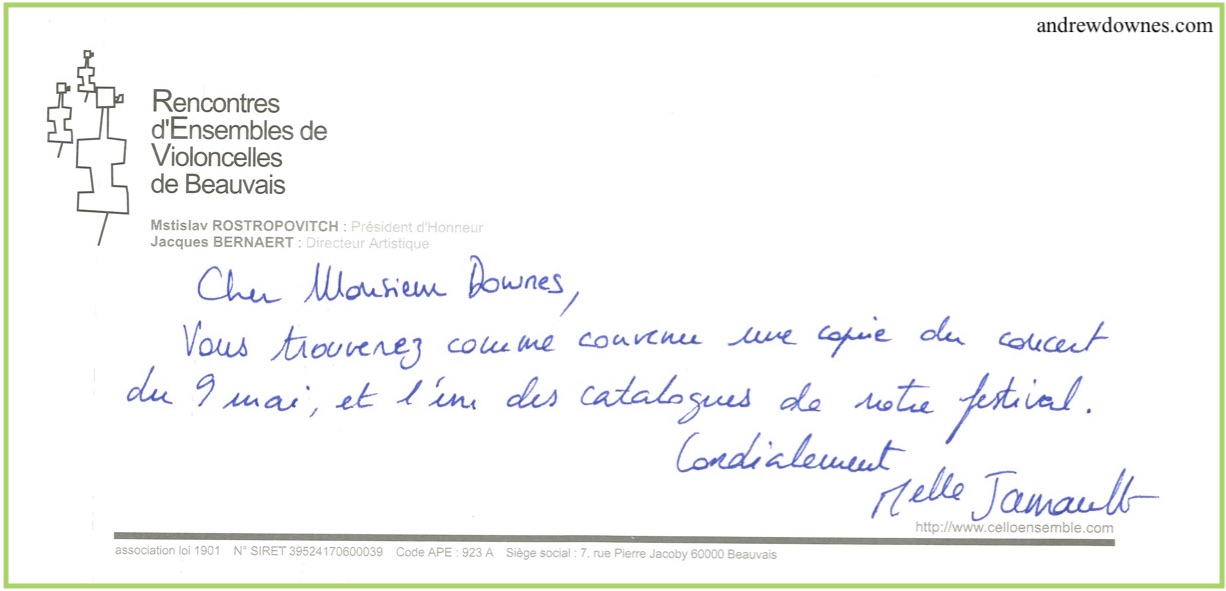 andrewdownes.com
Rencontres
d'Ensembles de
Violoncelles
de Beauvais
Mstislav ROSTROPOVITCH : Président d'Honneur
Jacques BERNAERT : Directeur Artistique
Cher Monsieur Downes,
Vous trouverez comme convenu une copie du concert
du 9 mai, et l'un des catalogues de notre festival.
Cordialement
Melle
http://www.celloensemble.com
association loi 1901 N° SIRET 39524170600039 Code APE : 923 A Siège social : 7, rue Pierre Jacoby 60000 Beauvais